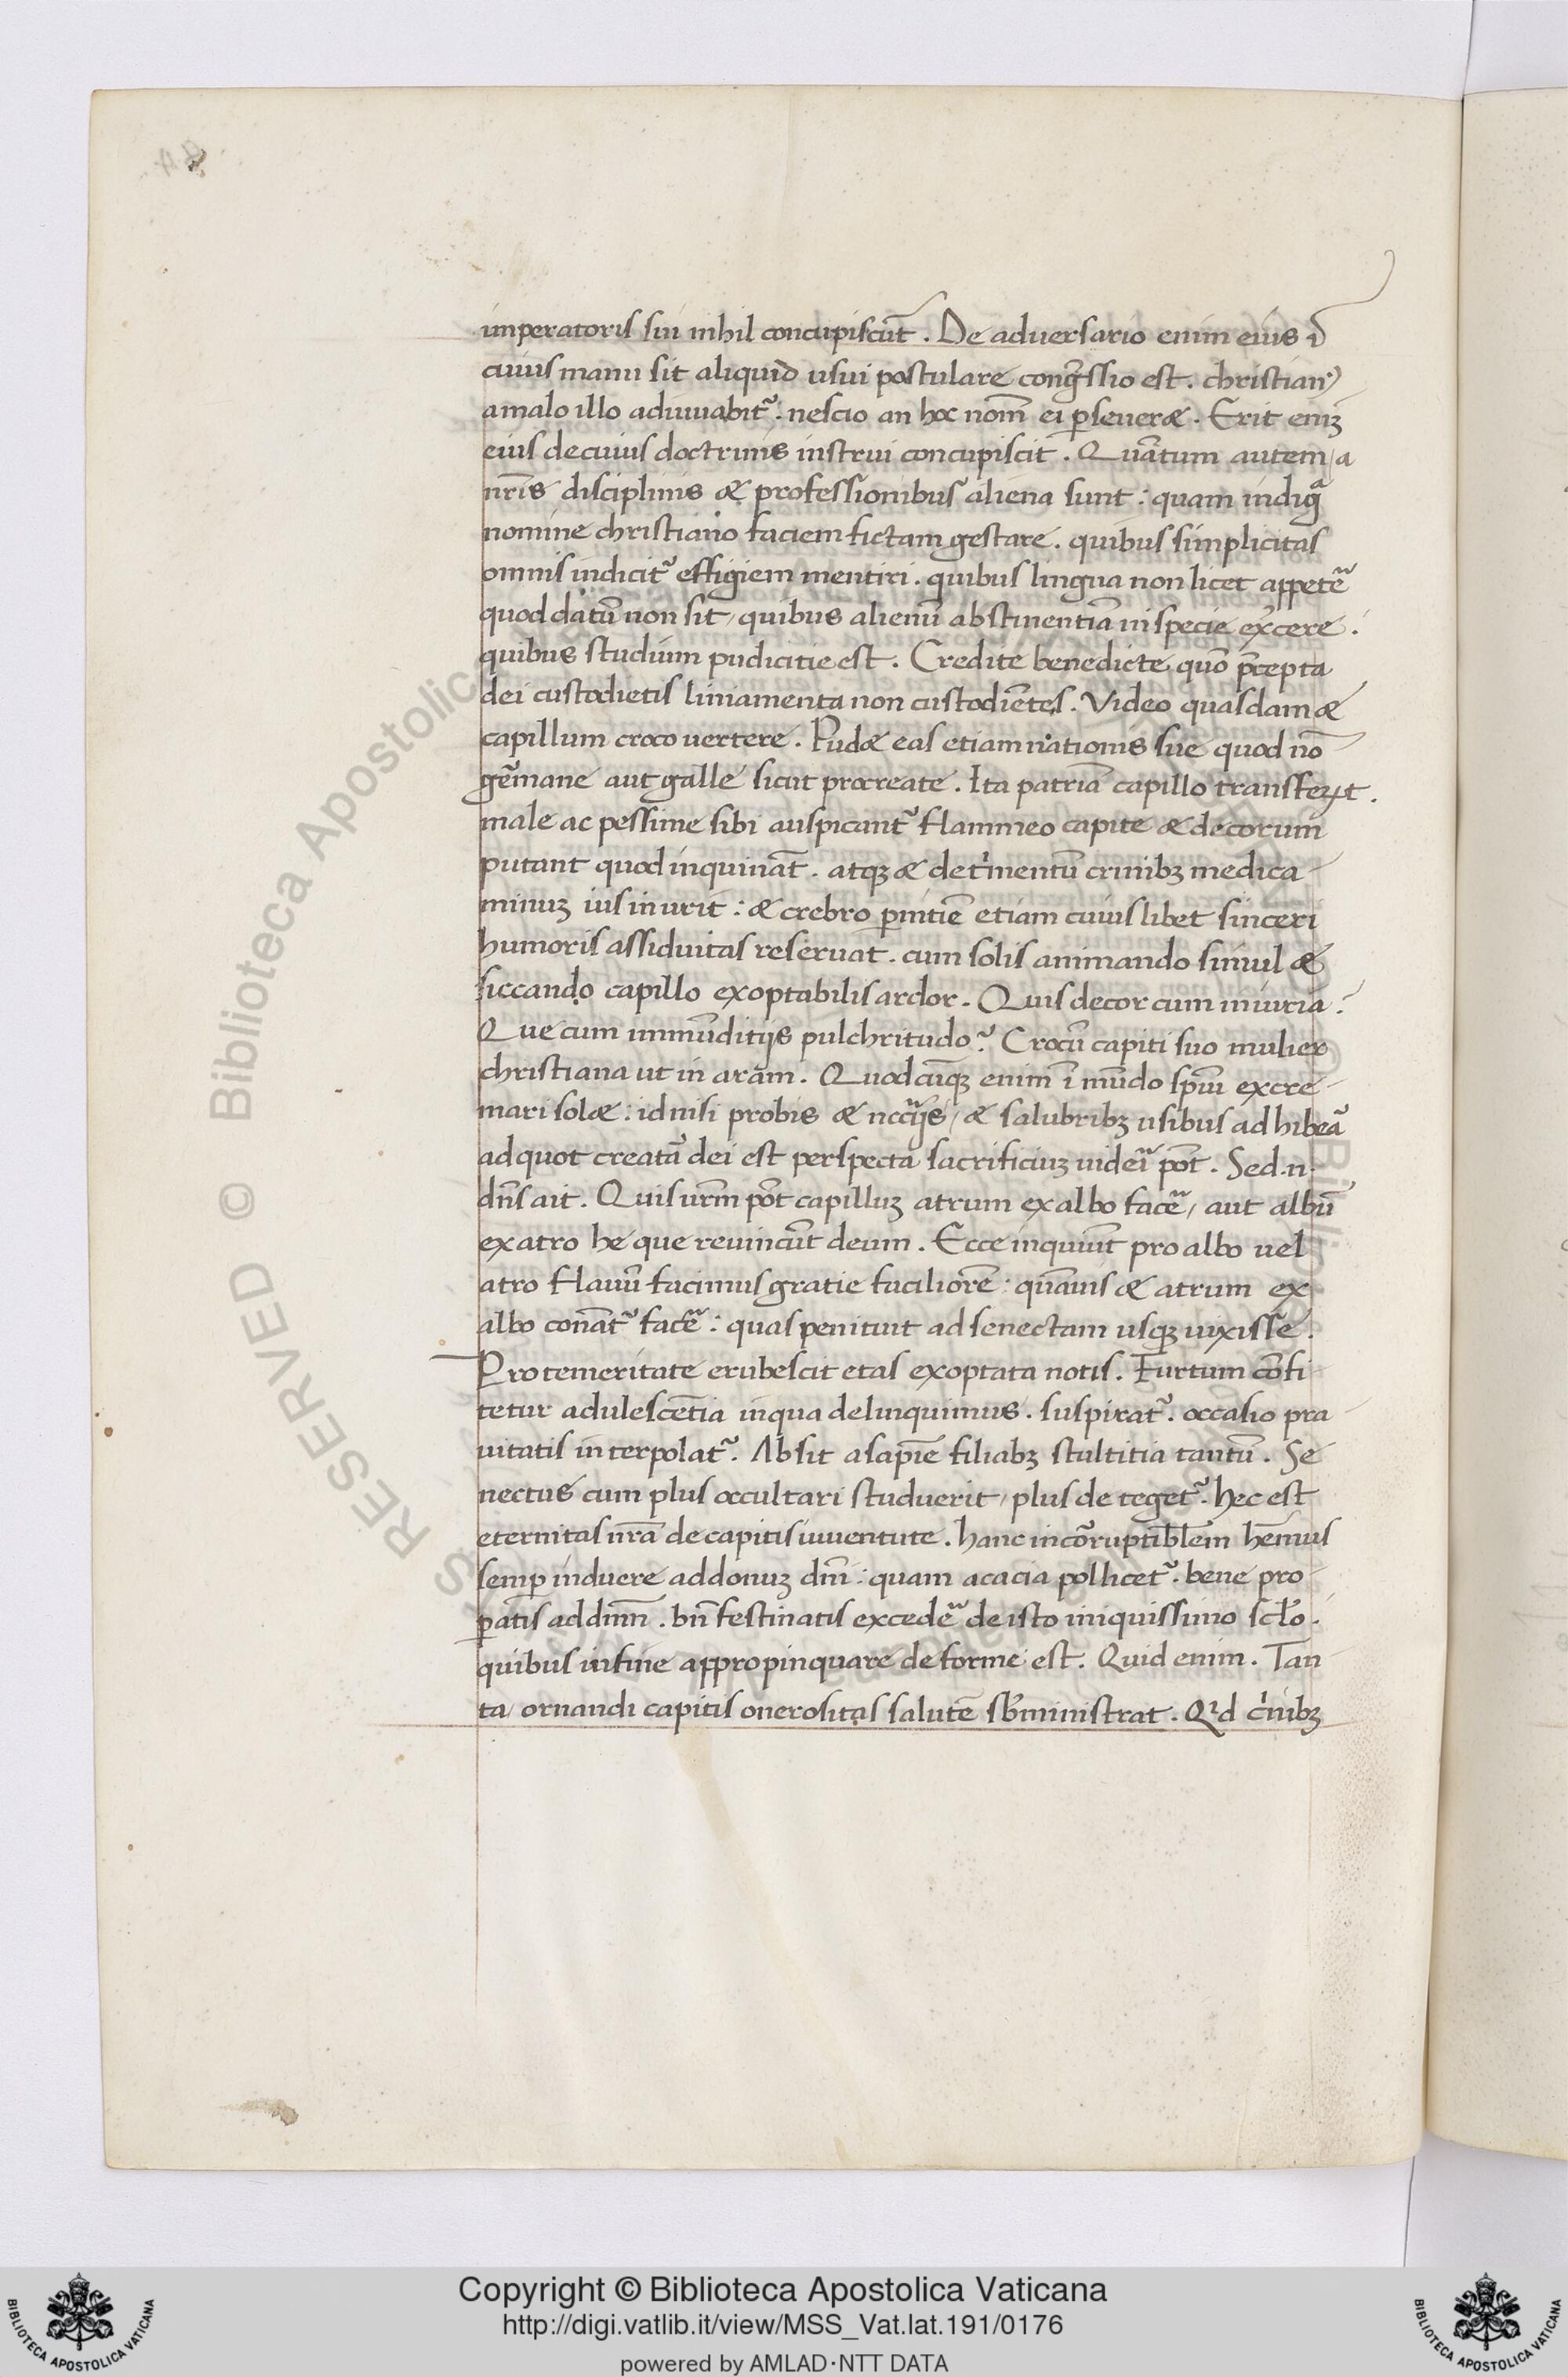 imperatoris sui nihil concupiscūt. De adversario enim eius ī
cuius manu sit aliquid usui postulare congr̄ssio est. christian⁹
amalo illo adiuvabit᷑. nescio an hoc nom̄ ei p̱severæ. Erit eniꝫ
eius decuius doctrinis instrui concupiscit. Quātum autem / a
nr̄is disciplinis & professionibus aliena sunt : quam indigᵃ
nomine christiano faciem fictam gestare. quibus simplicitas
omnis indicit᷑ effigiem mentiri. quibus lingua non licet appetē
quod datū non sit, quibus alienū abstinentiā inspecie ex̄cere.
quibus studium pudicitie est. Credite benedicte quō p̄cepta
dei custodietis liniamenta non custodiētes. Video quasdam &
capillum croco vertere. Pudæ eas etiam nationis sue quod nō
gēmane aut galle sicut procreate. Ita patriā capillo transferꝝt.
male ac pessime sibi auspicant᷑ flammeo capite & decorum
putant quod inquināt. atqꝫ & det̍mentū crinibꝫ medica
minuꝫ ius inurit : & crebro p̱nitiē etiam cuius libet sinceri
humoris assiduitas reservat. cum solis animando simul &
siccando capillo exoptabilis ardor. Quis decor cum iniuria ?
Que cum immūditijs pulchritudo ? Crocū capiti suo mulier
christiana ut in aram. Quodcūqꝫ enim ī mūdo spūi excre
mari solæ : id nisi probis & nccr̄ijs, & salubribꝫ usibus ad hibeā
ad quot creatā dei est perspecta sacrificiuꝫ videri pōt. Sed .n.
dn̄s ait. Quis vrm̄ pōt capilluꝫ atrum ex albo facē, aut albū
ex atro he que revincūt deum. Ecce inquiunt pro albo vel
atro flavū facimus gratie faciliorē : quāvis & atrum ex
albo conāt᷑ facē : quas penituit ad senectam usqꝫ vixisse.
Pro temeritate erubescit etas exoptata notis. Furtum cōfi
tetur adulescētia inqua delinquimus. suspirat᷑. occasio pra
vitatis interpolat᷑. Absit asapiē filiabꝫ stultitia tantū. Se
nectus cum plus occultari studuerit, plus de teget᷑. hec est
eternitas nr̄a de capitis iuventute. hanc incōruptibłem hēmus
semp̱ induere addonuꝫ dn̄i : quam acacia pollicet᷑. bene pro
p̱atis ad dnm̄. bn̄ festinatis excedē de isto iniquissimo scło.
quibus infine appropinquare deforme est. Quid enim. Tan
ta ornandi capitis onerositas salutē sb̄ministrat. Qͥd cͥnibꝫ
Copyright © Biblioteca Apostolica Vaticana
http://digi.vatlib.it/view/MSS_Vat.lat.191/0176
powered by AMLAD·NTT DATA